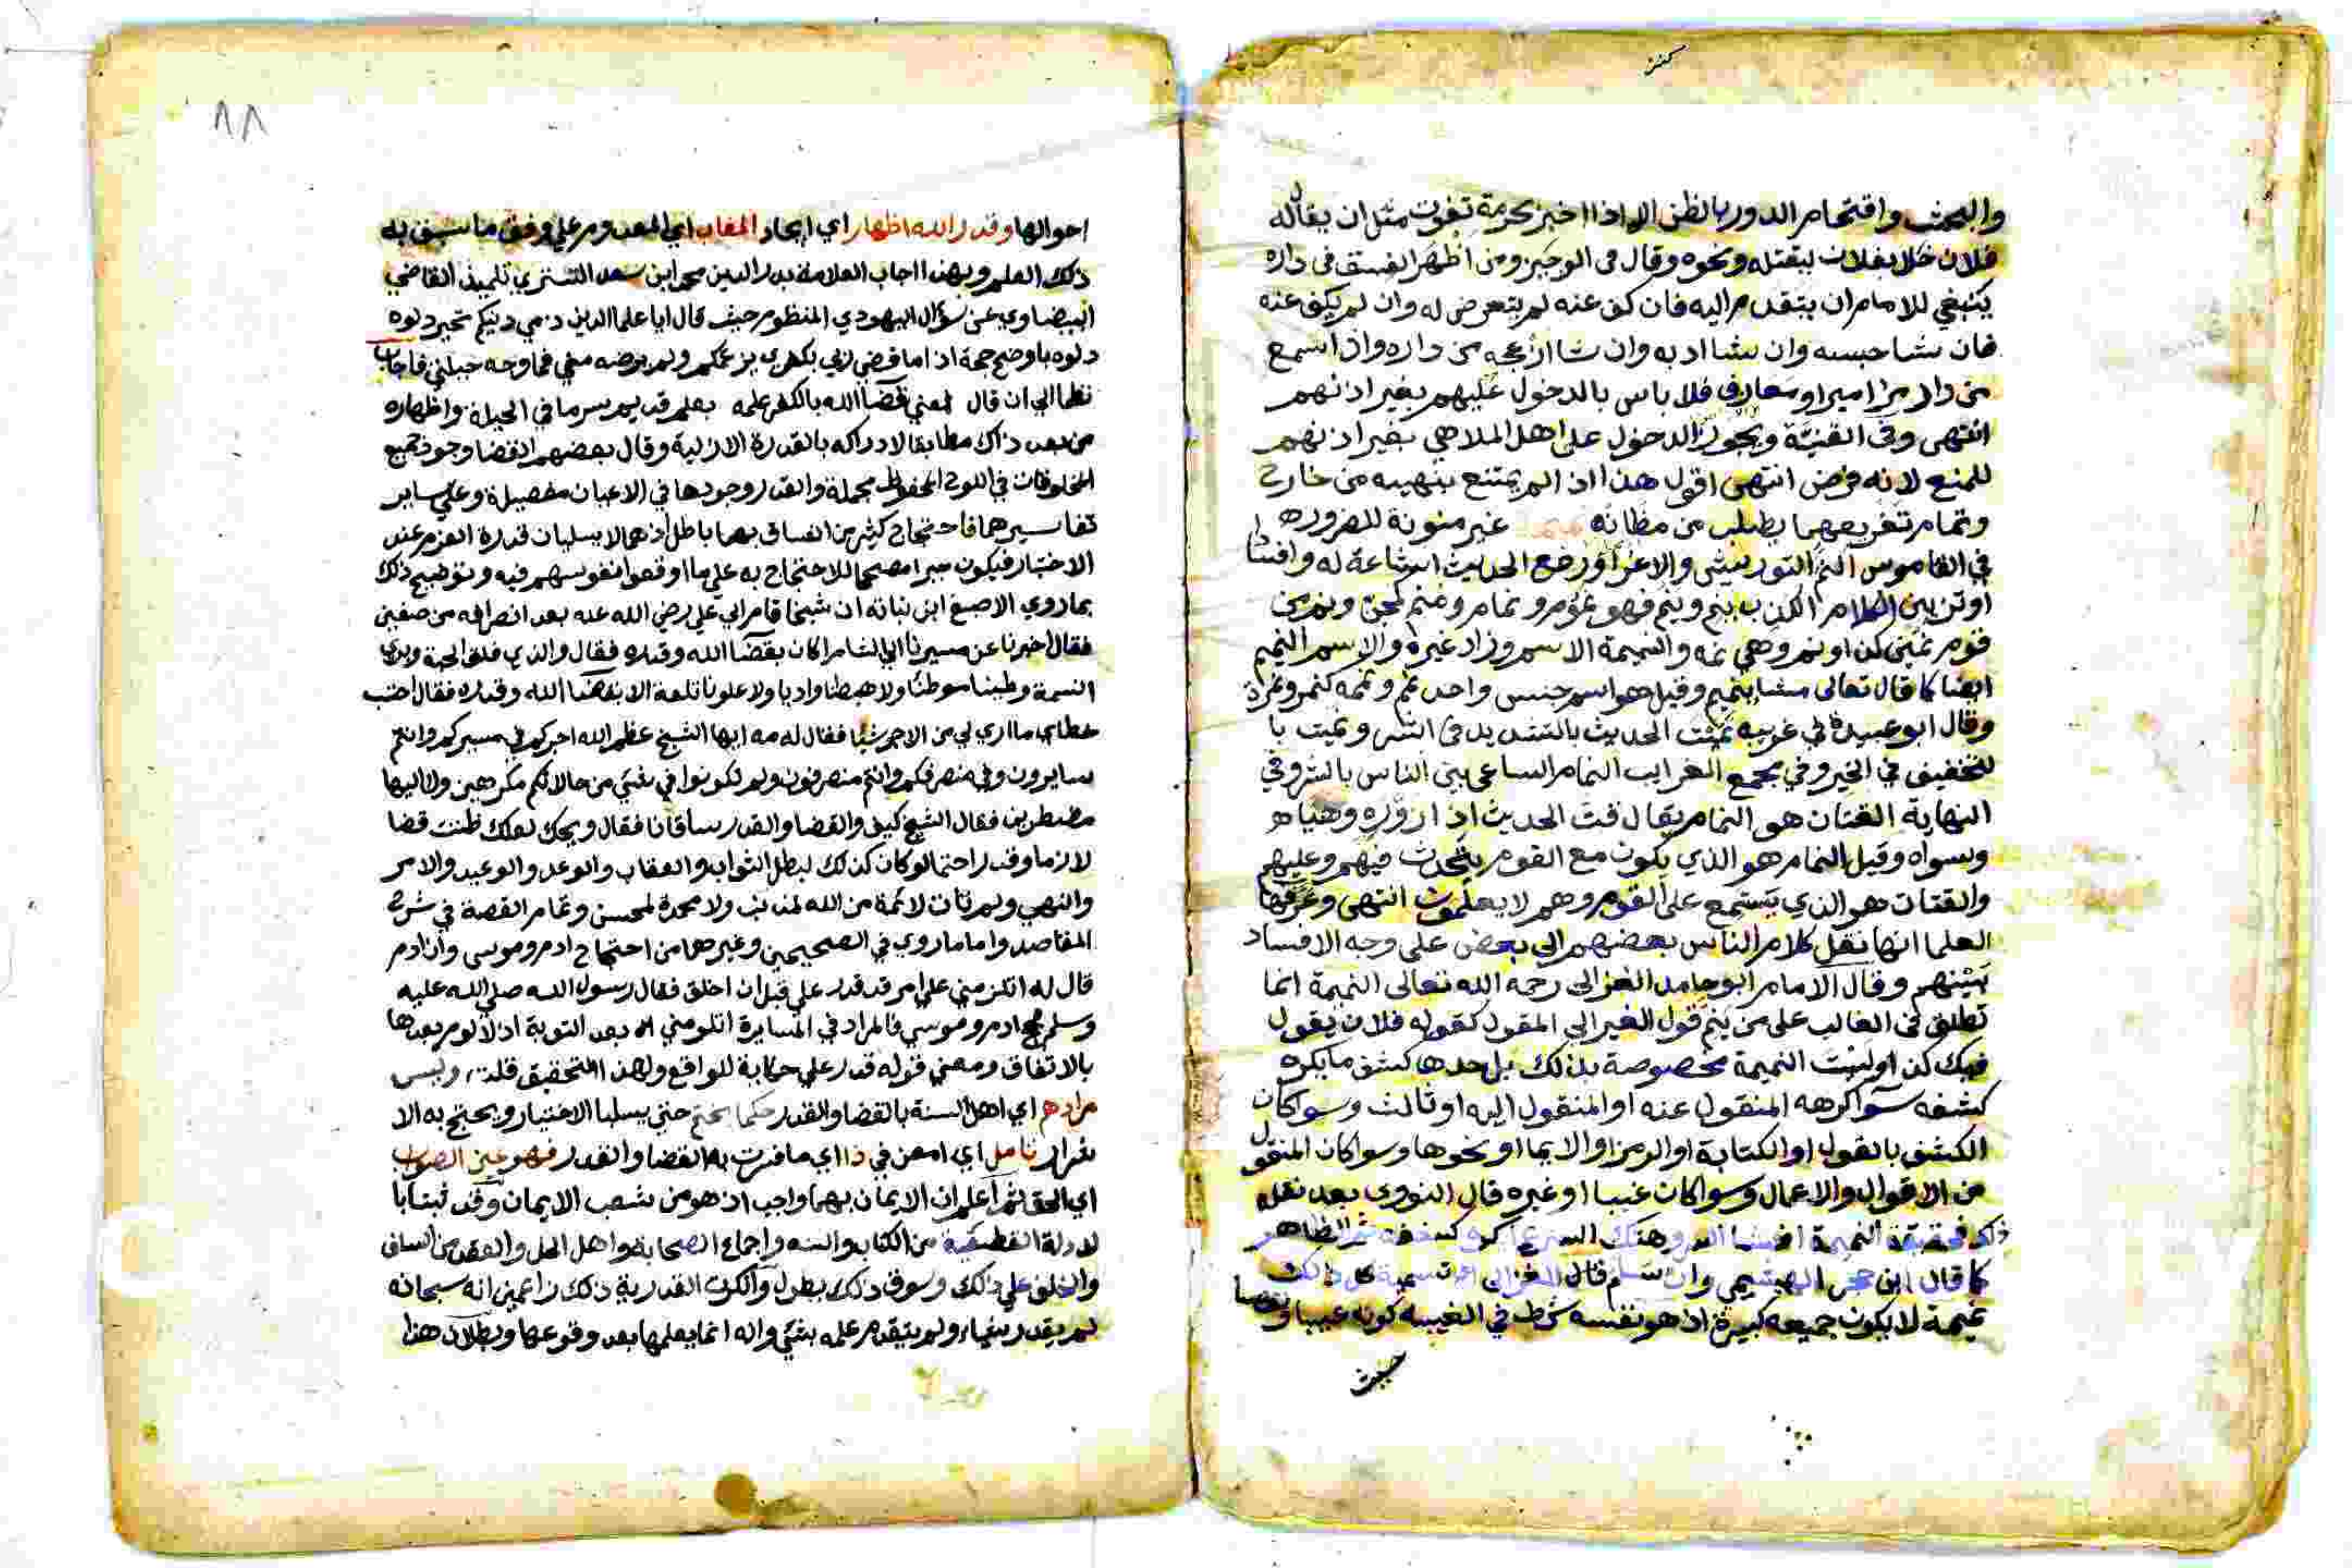 والبحث واقتحام الدور بالظن الا اذا اخبر بحرمة تفوت مثل ان يقال له
فلان خلا بفلان ليقتله ونحوه وقال في الوجيز ومن اظهر الفسق في داره
ينبغي للامام ان يتقدم اليه فان كف عنه لم يتعرض له وان لم يكف عنه
فان شا حبسه وان شا ادبه وان شا ازعجه من داره واذا سمع
من دار مزامير او معازف فلا باس بالدخول عليهم بغير اذنهم
انتهى وفي القنية ويجوز الدخول على اهل الملاهي بغير اذنهم
للمنع لانه فرض انتهى اقول هذا اذ الم يمتنع بنهيه من خارج
وتمام تفريعهما يطلب من مظانه غير منونة للضروره
في القاموس النم التوريش والاغرا ورفع الحديث اشاعة له وافشا
او تزيين الكلام الكذب ينم وينم فهو نموم ونمام ومنم كمجن ونم من
قوم نمين كذا ونم وهي نمه والنميمة الاسم وزاد غيره والاسم النميم
ايضا كما قال تعالى مشا بنميم وقيل هو اسم جنس واحد نم ونمه كتمر وتمرة
وقال ابو عبيدة في غريبه نميت الحديث بالتشديد في الشر ونميت با
لتخفيف في الخير وفي مجمع الغرايب النمام الساعي بين الناس بالشر وفي
النهاية القتات هو النمام يقال قت الحديث اذا زوره وهياه
وسواه وقيل النمام هو الذي يكون مع القوم يتحدث فيهم وعليهم
والقتات هو الذي يستمع على القوم وهم لا يعلمون انتهى وعرفها
العلما انها نقل كلام الناس بعضهم الى بعض على وجه الافساد
بينهم وقال الامام ابو حامد الغزالى رحمه الله تعالى النميمة انما
تطلق في الغالب على من ينم قول الغير الى المقول كقوله فلان يقول
فيك كذا وليست النميمة مخصوصة بذلك بل حدها كشف ما يكره
كشفه سوا كرهه المنقول عنه او المنقول اليه او ثالث وسوا كان
الكشف بالقول او الكتابة او الرمز او الايما او نحوها وسوا كان المنقول
من الاقوال والاعمال وسوا كان عيبا او غيره قال النووى بعد نقله
ذكر فحقيقة النميمة افشا السر وهتك الستر عما يكره كشفه ثم الظاهر
كما قال ابن حجر الهيتمي وان سلم قال الغزالى تسمية كل ذلك
نميمة لا يكون جميعه كبيرة اذ هو نفسه شرط في الغيبه كونه عيبا ونقصا
احوالها وقدر الله اظهار اي ايجاد المغاب اي المعدوم على وفق ما سبق به
ذلك العلم وبهذا اجاب العلامة بدر الدين محمد ابن سعد التستري تلميذ القاضي
البيضاوي عن سؤال اليهودي المنظوم حيث قال ايا علما الدين ذمي دينكم تحير دلوه
دلوه باوضح حجة اذا ما قضى ربي بكفري بزعمكم ولم يرضه مني فما وجه حيلتي فاجاب
نظما الى ان قال لمعني قضا الله بالكفر علمه بعلم قديم سر ما في الجبلة واظهاره
من بعد ذاك مطابقا لادراكه بالقدرة الازلية وقال بعضهم القضا وجود جميع
المخلوقات في اللوح المحفوظ مجملة والقدر وجودها في الاعيان مفصلة وعلى ساير
تفاسيرهما فاحتجاج كثير من الفساق بهما باطل اذ هما لا يسلبان قدرة العزم عند
الاختيار فيكون جبرا مصححا للاحتجاج به على ما اوقعوا نفوسهم فيه وتوضيح ذلك
بما روي الاصبغ ابن نباته ان شيخا قام الى علي رضي الله عنه بعد انصرافه من صفين
فقال اخبرنا عن مسيرنا الي الشام اكان بقضا الله وقدره فقال والذي فلق الحبة وبرى
النسمة وطينا موطئا ولا هبطنا واديا ولا علونا تلعة الا بقضا الله وقدره فقال احتسب
خطاي ما اري لي من الاجر شيا فقال له مه ايها الشيخ عظم الله اجركم في مسيركم وانتم
سايرون وفي منصرفكم وانتم منصرفون ولم تكونوا في شي من حالاتكم مكرهين ولا اليها
مضطرين فقال الشيخ كيف والقضا والقدر ساقانا فقال ويحك لعلك ظننت قضا
لازما وقدرا حتما لو كان كذلك لبطل الثواب والعقاب والوعد والوعيد والامر
والنهي ولم تات لائمة من الله لمذنب ولا محمدة لمحسن وتمام القصة في شرح
المقاصد واما ما روي في الصحيحين وغيرهما من احتجاج ادم وموسى وان ادم
قال له اتلومني على امر قد قدر علي قبل ان اخلق فقال رسول الله صلى الله عليه
وسلم فحج ادم موسى فالمراد في المسايرة اتلومني بعد التوبة اذ لا لوم بعدها
بالاتفاق ومعني قوله قدر علي حكاية للواقع ولهذا التحقيق قلت وليس
مرادهم اي اهل السنة بالقضا والقدر حكما يحتم حتى يسلبا الاختيار ويحتج به الا
تأمل اي امعن في ذا اي ما فسرت به القضا والقدر فهو عين الصواب
اي الحق ثم اعلم ان الايمان بهما واجب اذ هو من شعب الايمان وقد ثبتا با
لادلة القطعية من الكتاب والسنه واجماع الصحابة واهل الحل والعقد من السلف
والخلف على ذلك وسوف ذلك بطول وانكرت القدرية ذلك زاعمين انه سبحانه
لم يقدر شيا ولم يتقدم علمه بشي وانه انما يعلمها بعد وقوعها وبطلان هذا